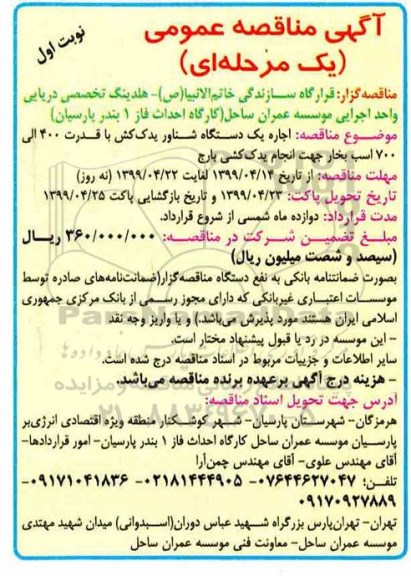 آگهی مناقصه عمومی
(یک مرحله‌ای)
نوبت اول
مناقصه‌گزار: قرارگاه سازندگی خاتم‌الانبیا(ص)- هلدینگ تخصصی دریایی
واحد اجرایی موسسه عمران ساحل(کارگاه احداث فاز ۱ بندر پارسیان)
موضوع مناقصه: اجاره یک دستگاه شناور یدک‌کش با قدرت ۴۰۰ الی
۷۰۰ اسب بخار جهت انجام یدک‌کشی بارج
مهلت مناقصه: از تاریخ ۱۳۹۹/۰۴/۱۴ لغایت ۱۳۹۹/۰۴/۲۲ (نه روز)
تاریخ تحویل پاکت: ۱۳۹۹/۰۴/۲۳ و تاریخ بازگشایی پاکت ۱۳۹۹/۰۴/۲۵
مدت قرارداد: دوازده ماه شمسی از شروع قرارداد.
مبلغ تضمین شرکت در مناقصه: ۳۶۰/۰۰۰/۰۰۰ ریال
(سیصد و شصت میلیون ریال)
بصورت ضمانتنامه بانکی به نفع دستگاه مناقصه‌گزار(ضمانت‌نامه‌های صادره توسط
موسسات اعتباری غیربانکی که دارای مجوز رسمی از بانک مرکزی جمهوری
اسلامی ایران هستند مورد پذیرش می‌باشد.) و یا واریز وجه نقد
- این موسسه در رد یا قبول پیشنهاد مختار است.
سایر اطلاعات و جزییات مربوط در اسناد مناقصه درج شده است.
- هزینه درج آگهی برعهده برنده مناقصه می‌باشد.
آدرس جهت تحویل اسناد مناقصه:
هرمزگان- شهرستان پارسیان- شهر کوشکنار منطقه ویژه اقتصادی انرژی‌بر
پارسیان موسسه عمران ساحل کارگاه احداث فاز ۱ بندر پارسیان- امور قراردادها-
آقای مهندس علوی- آقای مهندس چمن‌آرا
تلفن: ۰۷۶۴۴۶۲۷۰۴۷ -۰۲۱۸۱۴۴۴۹۰۵ -۰۹۱۷۱۰۴۱۸۳۶-
۰۹۱۷۰۹۲۷۸۸۹
تهران- تهران‌پارس بزرگراه شهید عباس دوران(اسبدوانی) میدان شهید مهتدی
موسسه عمران ساحل- معاونت فنی موسسه عمران ساحل